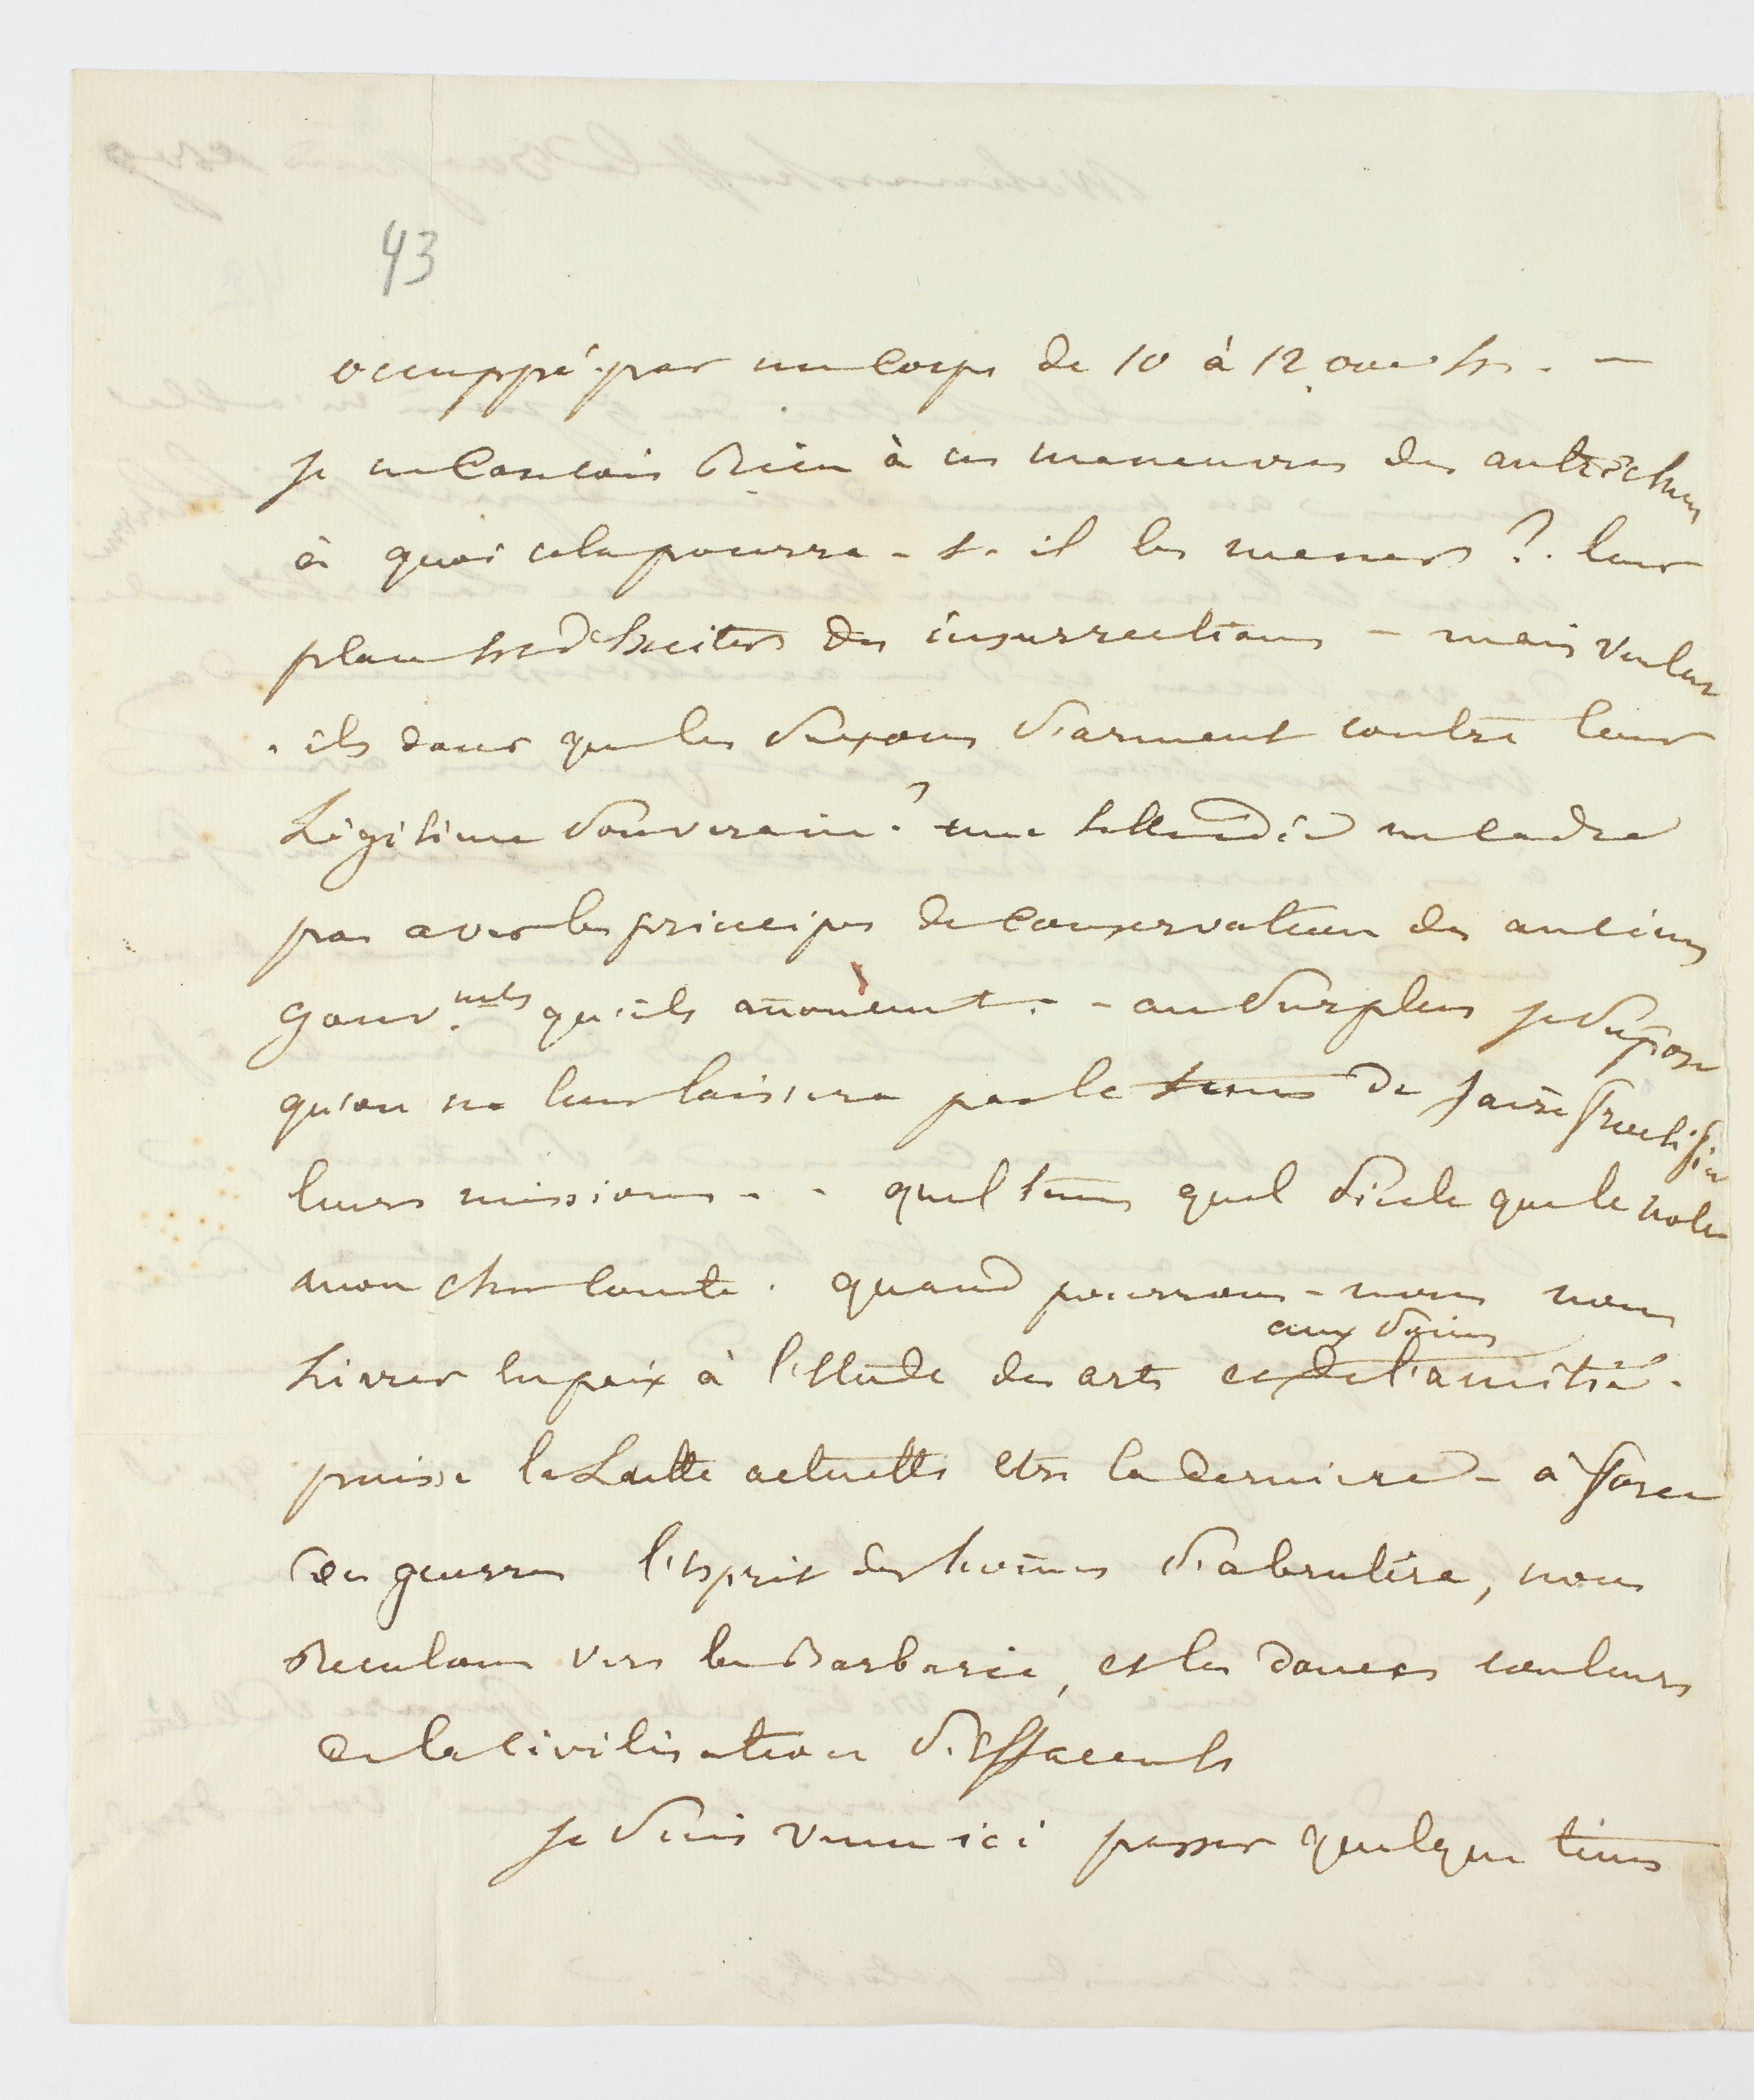 43
occuppé par un Corps de 10 à 12
je ne Concois Rien à ces maneuvres des autrichiens
à quoi cela pourra-t-il les mener ? leur
plan est d'Exciter des insurrections - mais veulent
-ils donc que les saxons s'arment contre leur
Légitime souverain ? une telle idée ne cadre
pas avec les principes de Conservation des anciens
gouv.mts qu'ils anoncent. - au surplus je supose
qu'on ne leur laissera pas le tems de faire fructifier
leurs missions - - quel tems quel siecle que le notre
mon cher Comte. quand pourrons-nous nous
Livrer en paix à l'Etude des arts et aux soins de l'amitié.
puisse la Lutte actuelle etre la derniere - à force
de guerres l'esprit des homes s'abrutira, nous
Reculons vers la Barbarie, et les douces couleurs
de la civilisation s'Effacent
je suis venu ici passer quelque tems